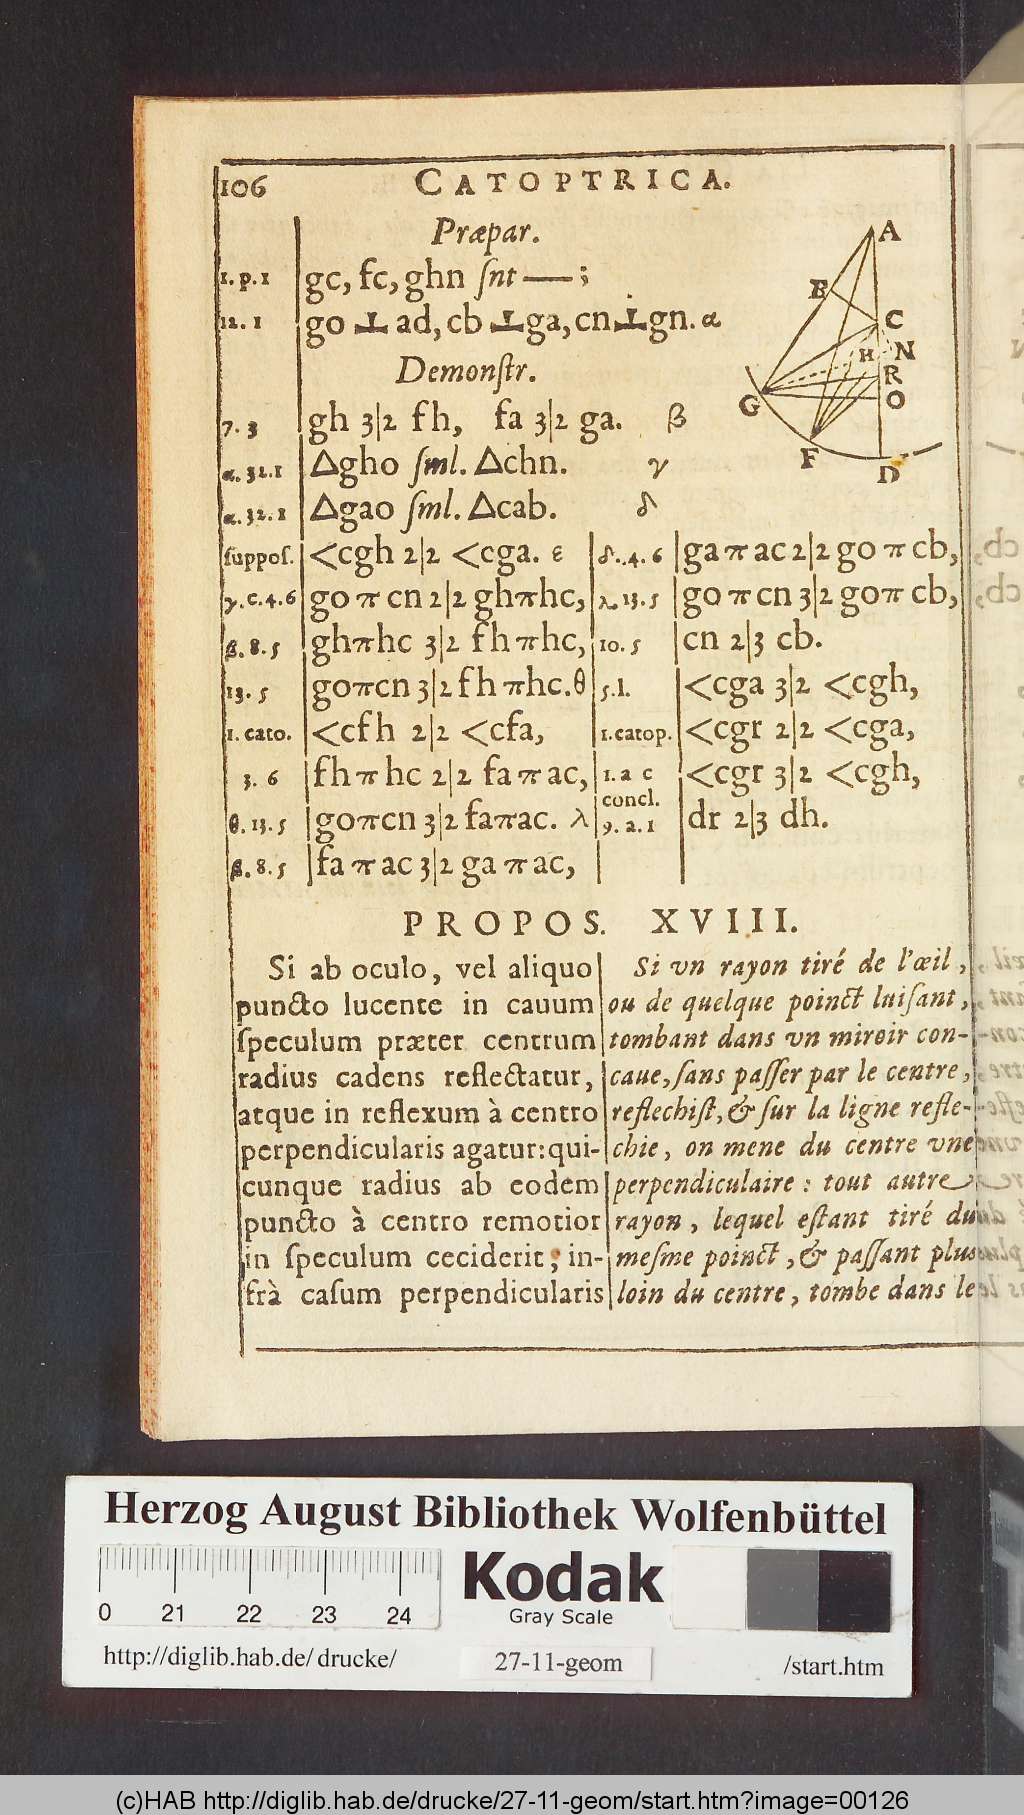 106 CATOPTRICA.
Præpar.
1. p. 1 gc, fc, ghn ſnt —;
12. 1 go ⊥ ad, cb ⊥ ga, cn ⊥ gn. α
Demonſtr.
7. 3 gh 3|2 fh, fa 3|2 ga. β
α. 32. 1 △gho ſml. △chn. γ
α. 32. 1 △gao ſml. △cab. δ
A
B
C
H N
R
G O
F
D
ſuppoſ. <cgh 2|2 <cga. ε
γ. c. 4. 6 go π cn 2|2 gh π hc,
β. 8. 5 gh π hc 3|2 fh π hc,
13. 5 go π cn 3|2 fh π hc. θ
1. cato. <cfh 2|2 <cfa,
3. 6 fh π hc 2|2 fa π ac,
θ. 13. 5 go π cn 3|2 fa π ac. λ
β. 8. 5 fa π ac 3|2 ga π ac,
δ. 4. 6 ga π ac 2|2 go π cb,
λ. 13. 5 go π cn 3|2 go π cb,
10. 5 cn 2|3 cb.
5. 1. <cga 3|2 <cgh,
1. catop. <cgr 2|2 <cga,
1. a c <cgr 3|2 <cgh,
concl.
9. a. 1 dr 2|3 dh.
PROPOS. XVIII.
Si ab oculo, vel aliquo
puncto lucente in cauum
ſpeculum præter centrum
radius cadens reflectatur,
atque in reflexum à centro
perpendicularis agatur: qui-
cunque radius ab eodem
puncto à centro remotior
in ſpeculum ceciderit; in-
frà caſum perpendicularis
Si vn rayon tiré de l'œil,
ou de quelque poinct luiſant,
tombant dans vn miroir con-
caue, ſans paſſer par le centre,
reflechiſt, & ſur la ligne refle-
chie, on mene du centre vne
perpendiculaire: tout autre
rayon, lequel eſtant tiré du
meſme poinct, & paſſant plus
loin du centre, tombe dans le
Herzog August Bibliothek Wolfenbüttel
0 21 22 23 24
Kodak
Gray Scale
http://diglib.hab.de/drucke/ 27-11-geom /start.htm
(c)HAB http://diglib.hab.de/drucke/27-11-geom/start.htm?image=00126